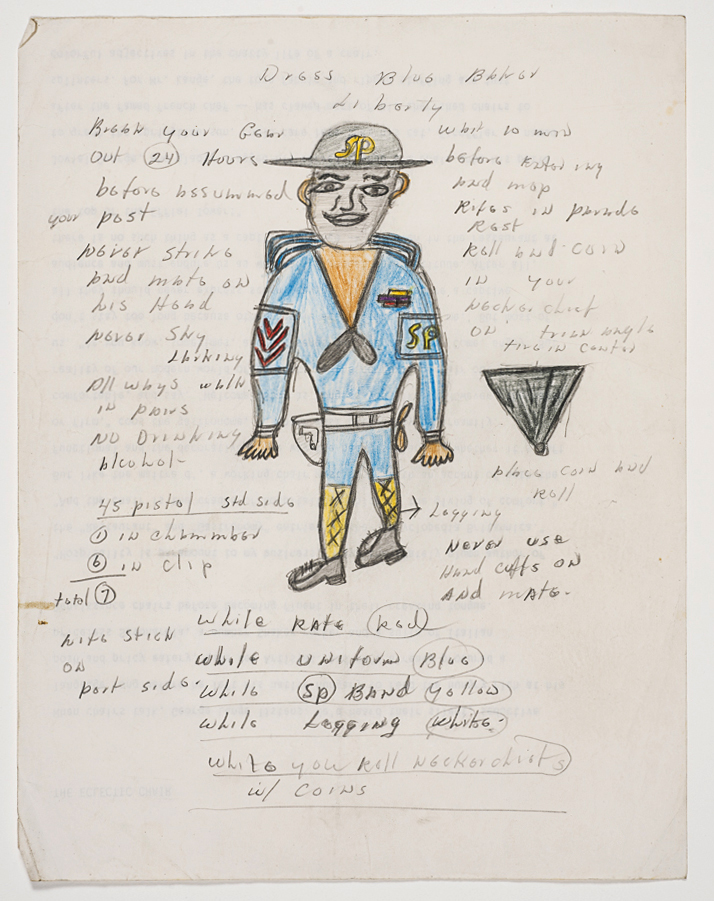 Dress Blue Baker
Liberty
Break your Gear
out 24 Hours
before assummed
your post
never strike
and mate on
his Head
never Shy
All ways walk
in pairs
NO Drinking
Alcohol-
45 pistol std side
① in chammber
⑥ in clip
total ⑦
nite stick
on
port side.
what to
before entering
and mop
Rifes in parade
Rest
Roll and coin
in your
neckerchief
on trian angle
tire in center
SP
SP
place coin and
Roll
Logging
Never use
Hand cuffs on
And mate-
while RATE Red
while uniform Blue
while SP BAND yollow
while Logging white-
white you Roll neckerchiefs
w/ COINS